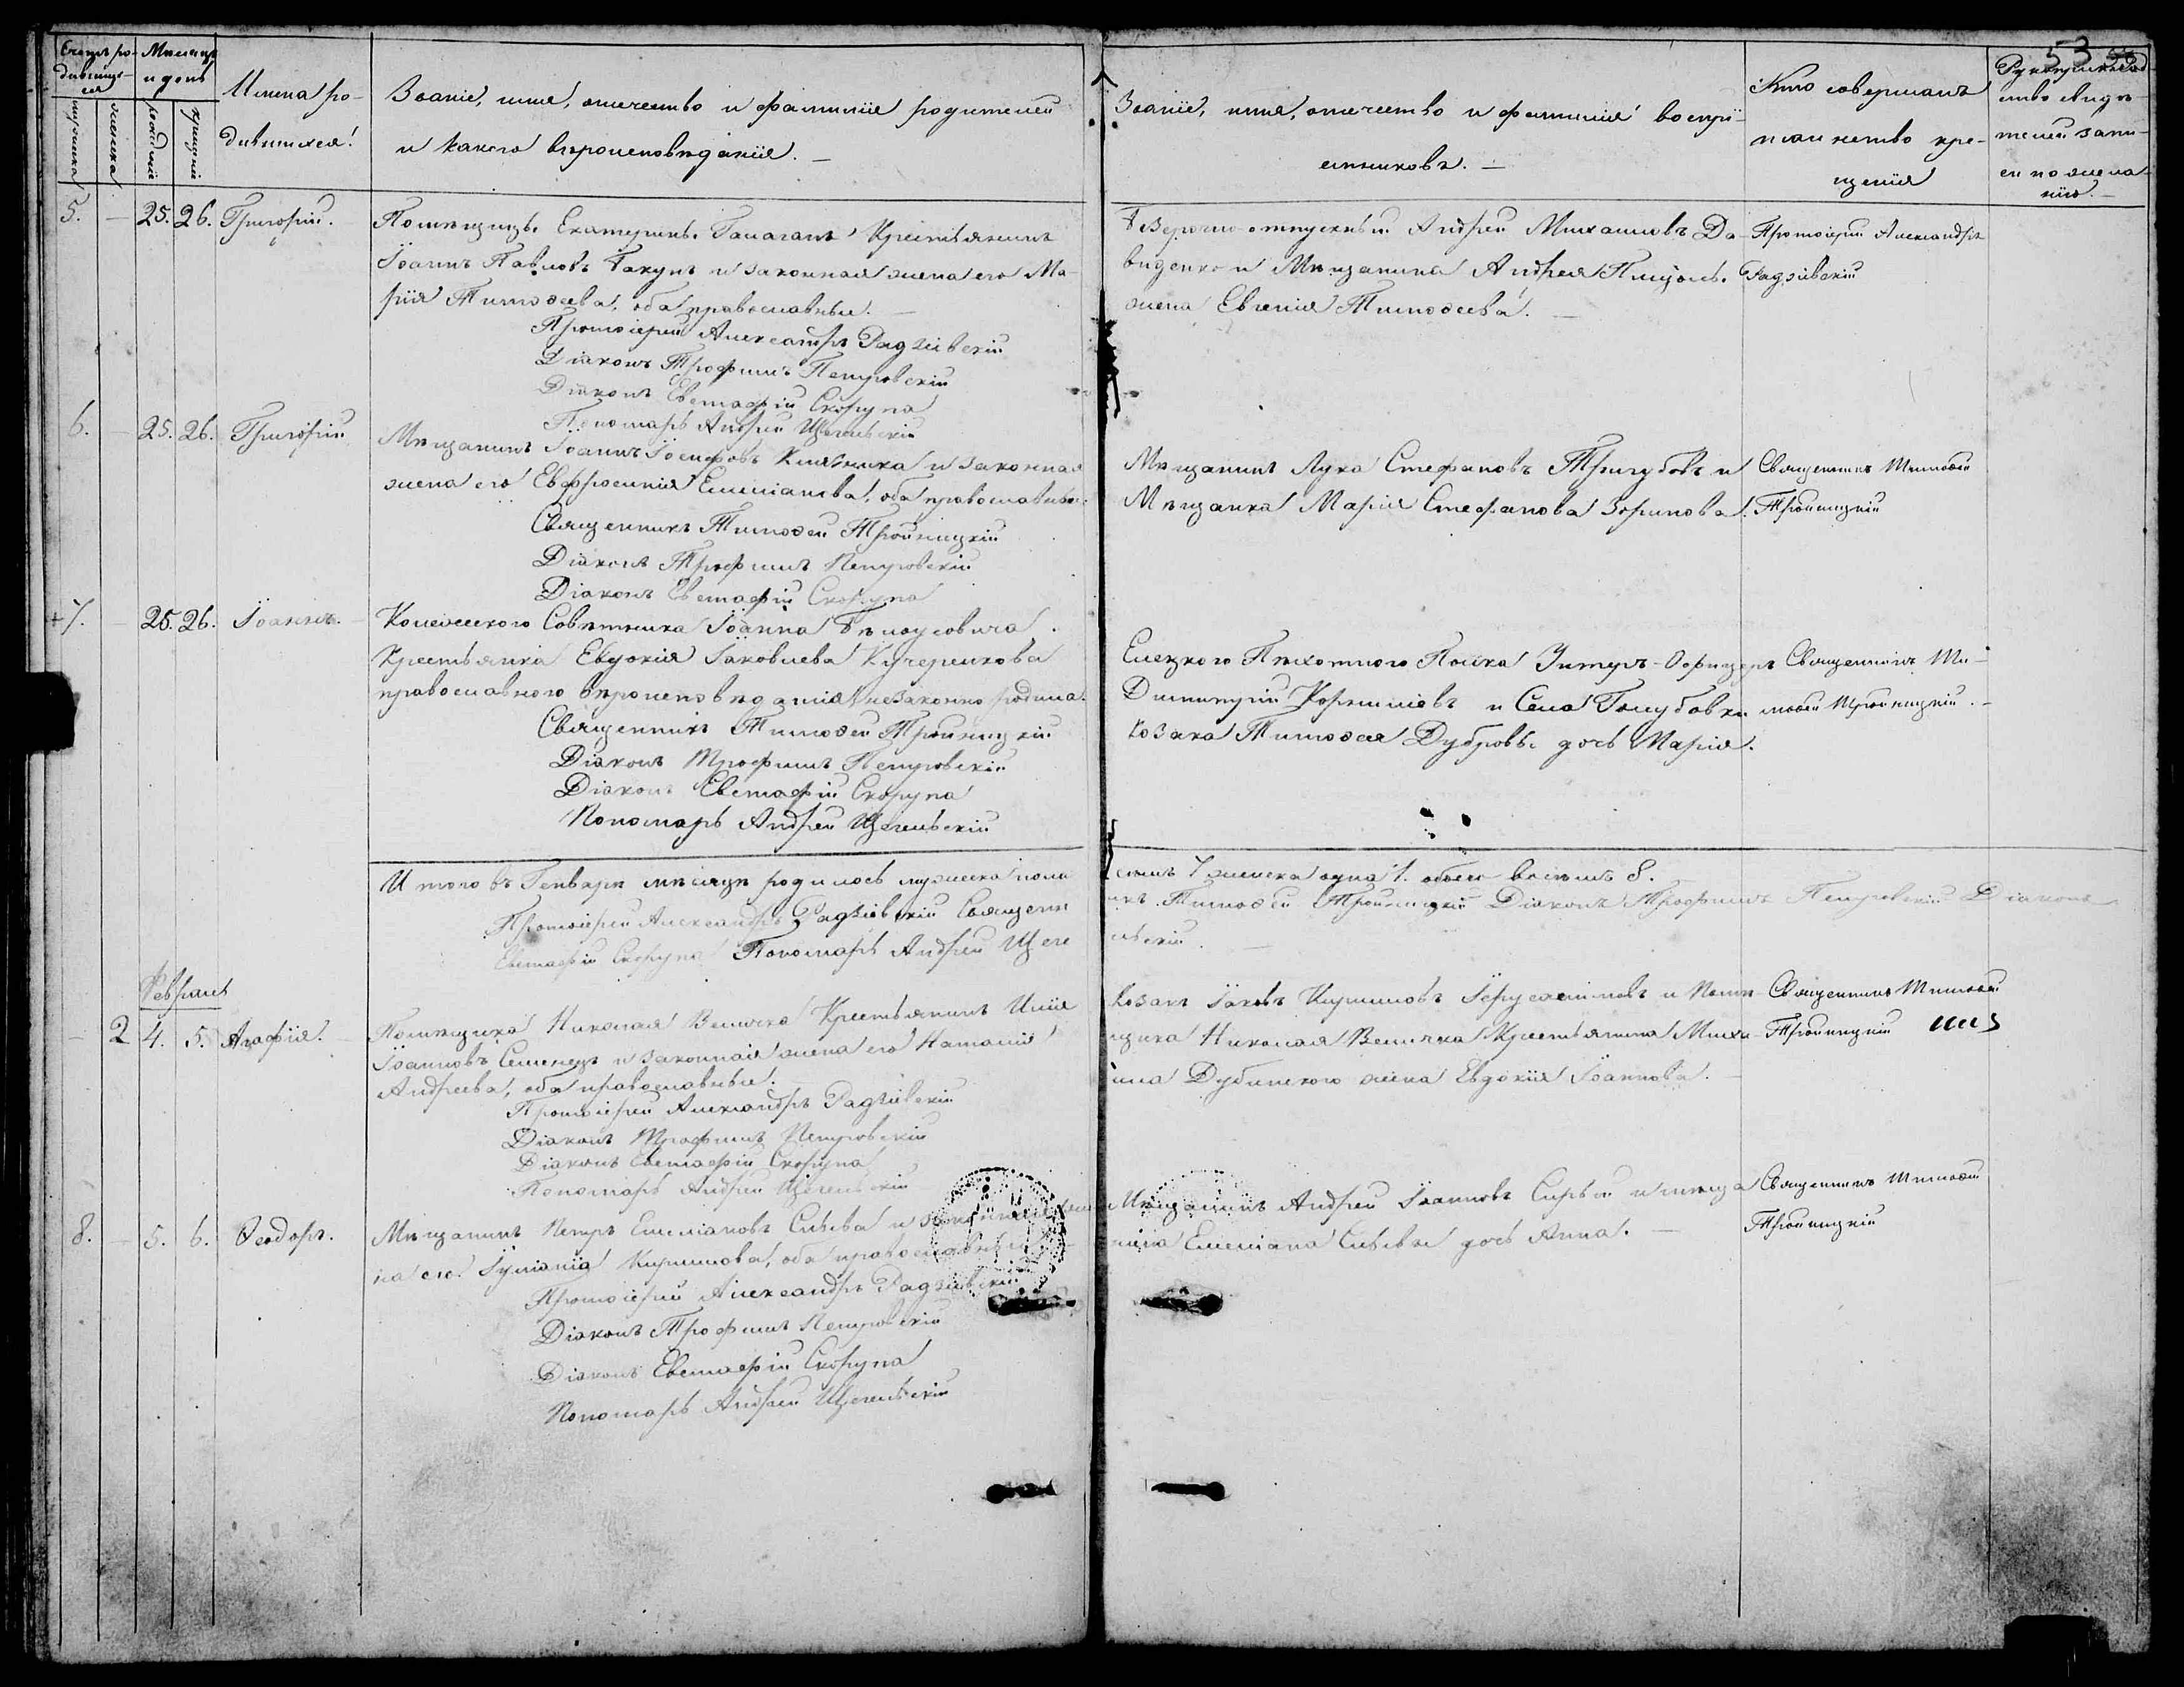 53
Счетъ ро-
дивших-
ся
Мѣсяцъ
и день
мужеска
женска
рожденія
крещенія
Имена ро-
дившихся.
Званіе, имя, отчество и фамилія родителей
и какого вѣроисповѣданія. —
Званіе, имя, отчество и фамилія воспрі-
емниковъ. —
Кто совершалъ
таинство кре-
щенія
Рукоприклад-
ство свидѣ-
телей запи-
си по жела-
нію. —
5. — 25. 26. Григорій.
Помѣщицы Екатерины Галаганъ Крестьянинъ
Іоаннъ Павловъ Бакунъ и законная жена его Ма-
рія Тимоѳеева, оба православные. —
Протоіерей Александръ Радзіевскій
Діаконъ Трофимъ Петровскій
Діаконъ Евстафій Скорупа
Пономарь Андрей Щегельскій
Андрей Михаиловъ Да-
виденко и Мѣщанина Андрея
жена Евгенія Тимоѳеева. —
Протоіерей Александръ
Радзіевскій
6. — 25. 26. Григорій
Мѣщанинъ Іоаннъ Іосифовъ и законная
жена его Евфросинія Емеліанова, оба православные.
Священникъ Тимоѳей Тройницкій
Діаконъ Трофимъ Петровскій
Діаконъ Евстафій Скорупа
Мѣщанинъ Лука Стефановъ Тригубовъ и
Мѣщанка Марія Стефанова Зоринова.
Священникъ Тимоѳей
Тройницкій
+7. — 25. 26. Іоаннъ. —
Колежского Совѣтника Іоанна Бѣлоусовича
Крестьянка Евдокія Іаковлева Кучеренкова
православного вѣроисповѣданія незаконно родила.
Священникъ Тимоѳей Тройницкій
Діаконъ Трофимъ Петровскій
Діаконъ Евстафій Скорупа
Пономарь Андрей Щегельскій
Елецкого Пѣхотного Полка Унтеръ-Офицеръ
Димитрій Корниліевъ и Села Голубовки
козака Тимоѳея Дубровы дочь Марія.
Священникъ Ти-
моѳей Тройницкій. —
Итого въ Генварѣ мѣсяцѣ родилось мужеска пола
семь 7 женска одна 1. обоего восемь 8.
Протоіерей Александръ Радзіевскій Священн
икъ Тимоѳей Тройницкій Діаконъ Трофимъ Петровскій Діаконъ
Евстафій Скорупа Пономарь Андрей Щеге
льскій. —
Февраль
— 2 4. 5. Агафія. —
Помѣщика Николая Велички Крестьянинъ Илія
Іоанновъ Семенецъ и законная жена его Наталія
Андреева, оба православные.
Протоіерей Александръ Радзіевскій
Діаконъ Трофимъ Петровскій
Діаконъ Евстафій Скорупа
Пономарь Андрей Щегельскій
Козакъ Іаковъ Кириловъ Іерусалимовъ и Помѣ-
щика Николая Велички Крестьянина Миха-
ила Дубинского жена Евдокія Іоаннова. —
Священникъ Тимоѳей
Тройницкій
8. — 5. 6. Ѳеодоръ.
Мѣщанинъ Петръ Емеліановъ Сиѣвъ и законная же-
на его Іуліанія Кирилова, оба православные
Протоіерей Александръ Радзіевскій
Діаконъ Трофимъ Петровскій
Діаконъ Евстафій Скорупа
Пономарь Андрей Щегельскій
Мѣщанинъ Андрей Іоанновъ Сирый и мѣща
нина Емеліана дочь Анна. —
Священникъ Тимоѳей
Тройницкій